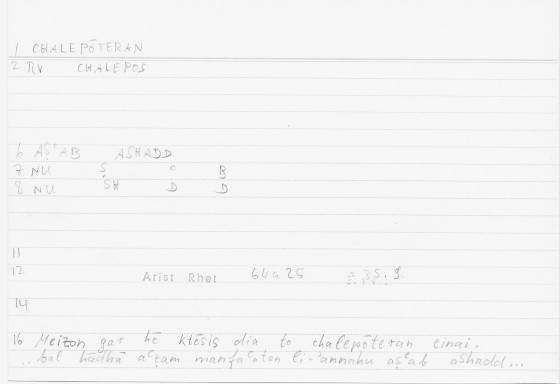 1 CHALEPŌTERAN
2 RV CHALEPOS
6 AṢʿAB ASHADD
7 NU Ṣ ʿ B
8 NU SH D D
11
12 Arist Rhet 64a25 35.9
14
16 Meizon gar hē ktēsis dia to chalepōteran einai.
.. bal hādhā aʿẓam manfaʿaton li-ʾannahu aṣʿab ashadd...